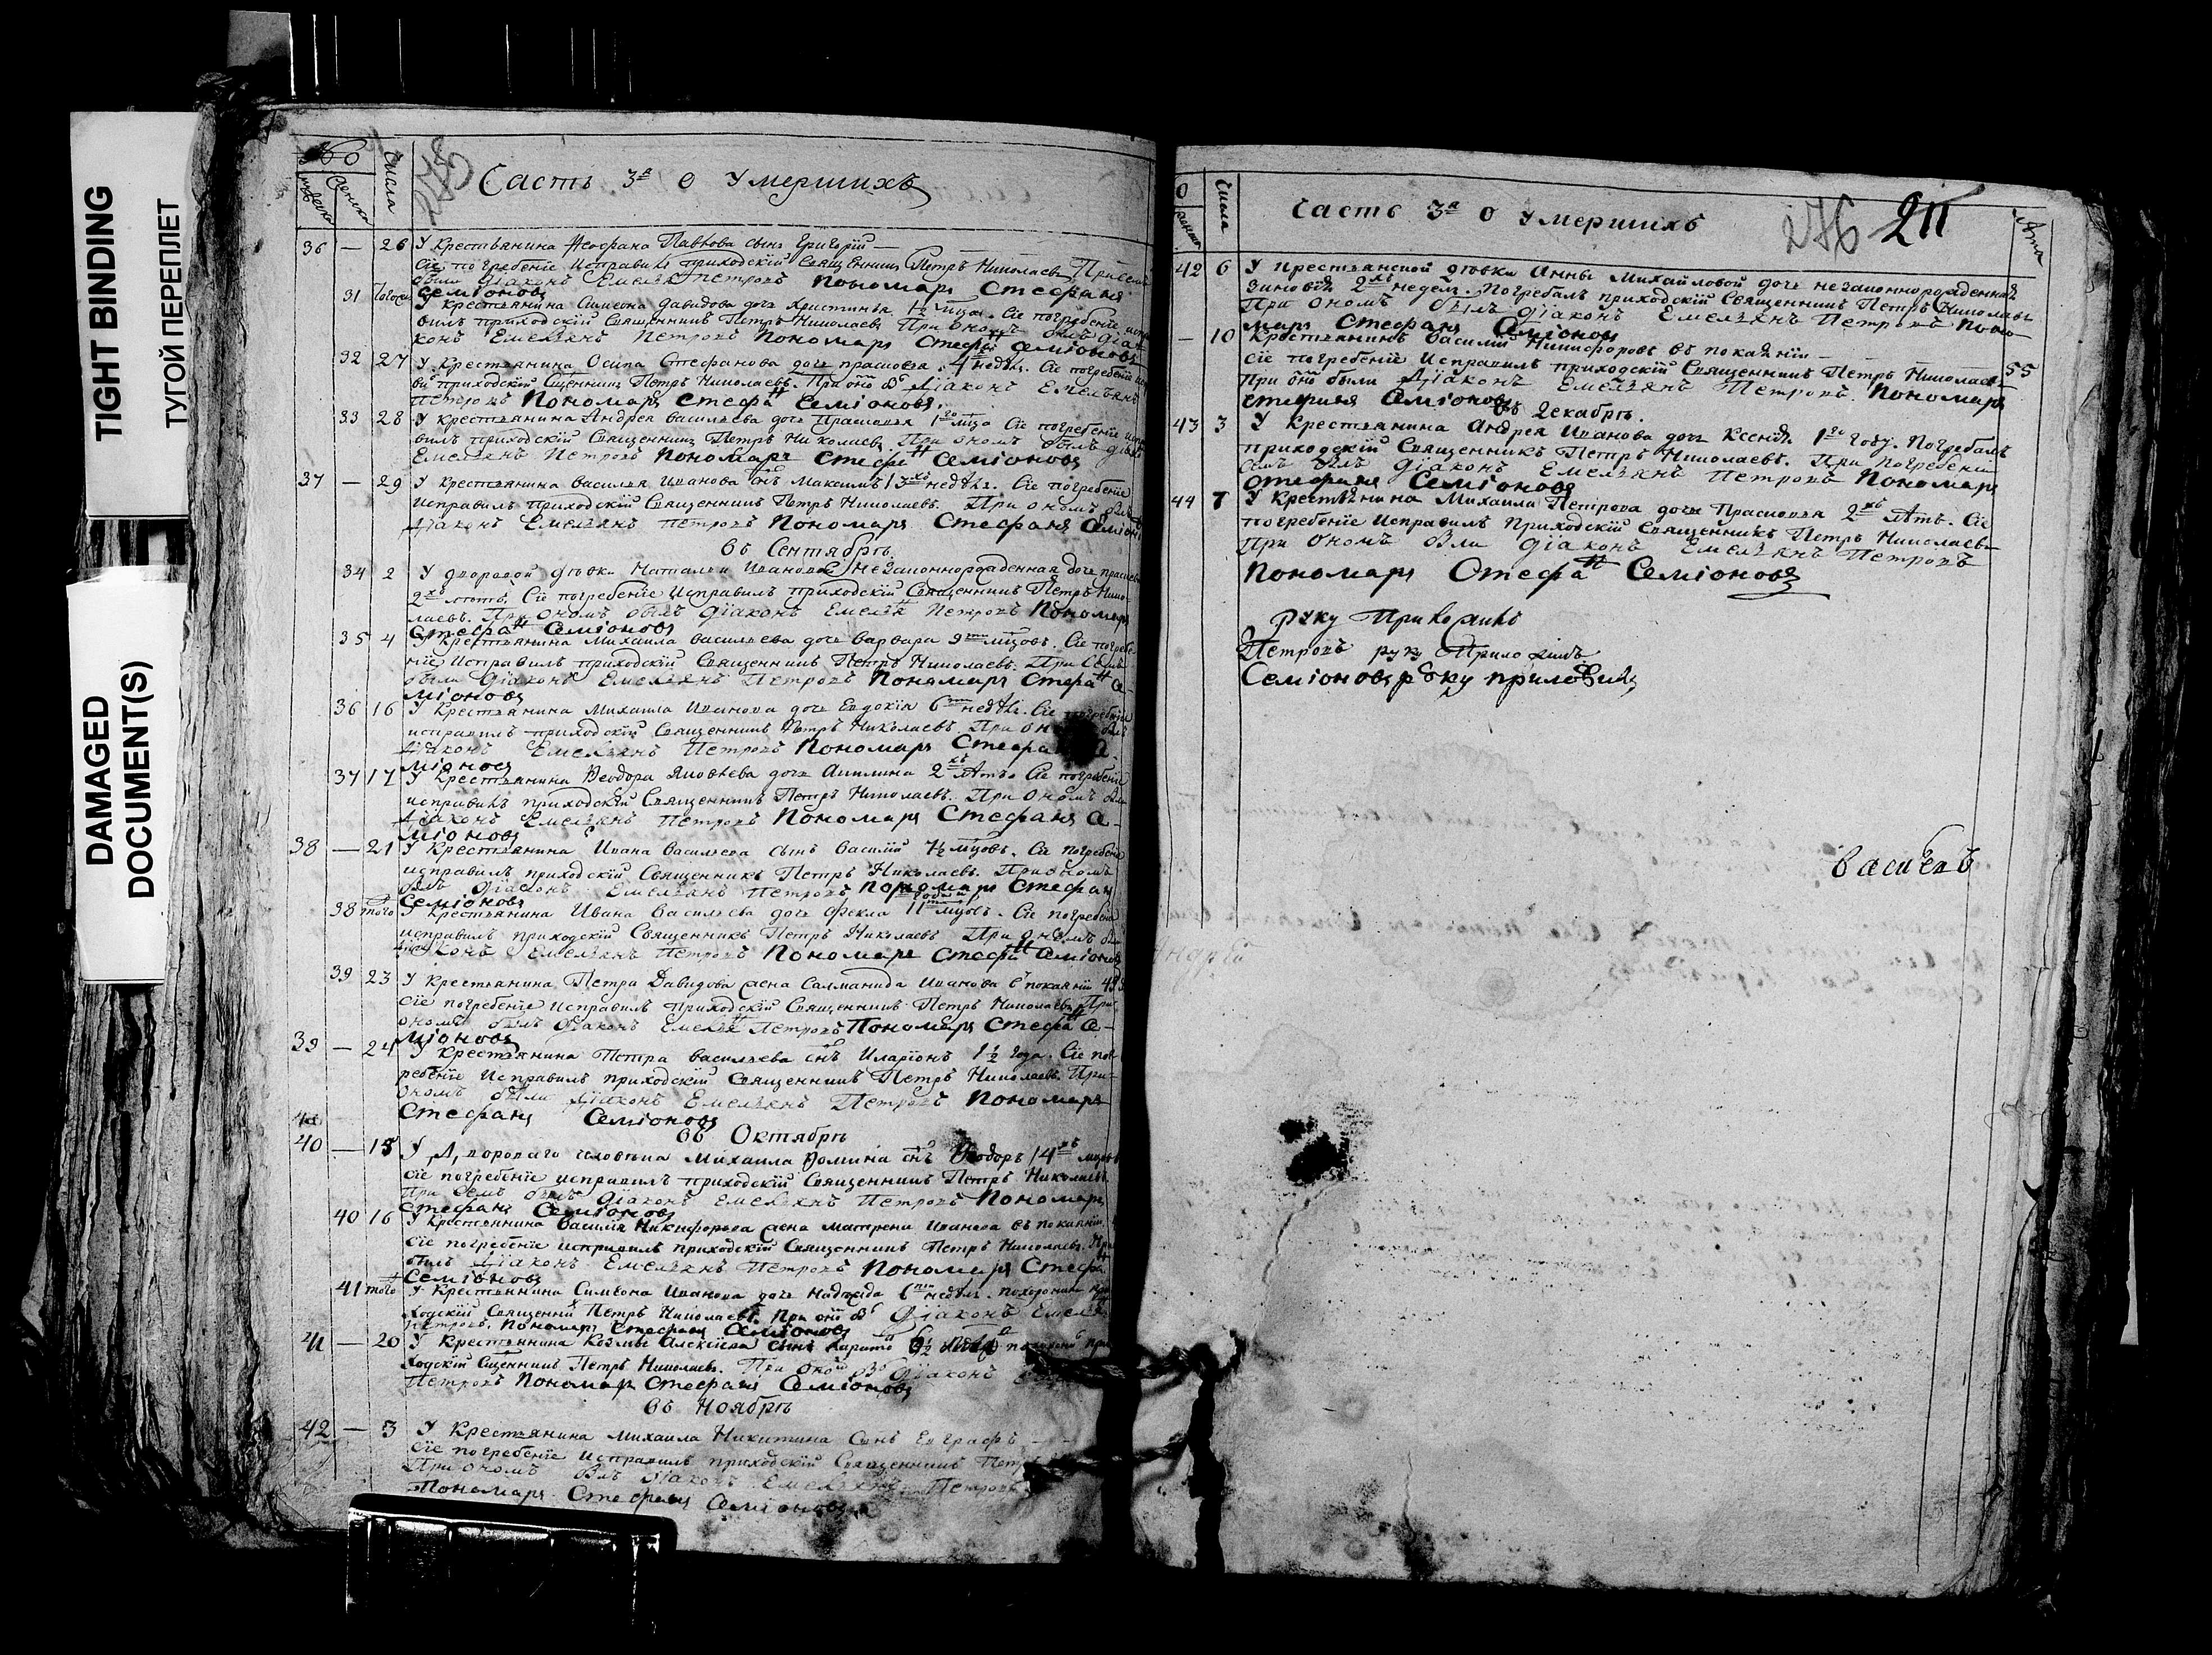 TIGHT BINDING
ТУГОЙ ПЕРЕПЛЕТ
DAMAGED
DOCUMENT(S)
№
Числа
Часть 3я о умершихъ
36 — 26 У Крестьянина Павлова сынъ Григорій —
Сіе погребеніе Исправилъ приходскій Священникъ Петръ Николаевъ При семъ
Петровъ Пономарь Стефанъ
Семіоновъ
31 У Крестьянина Симеона Давидова дочь Христинья 1½ мца. Сіе погребеніе
вилъ приходскій Священникъ Петръ Николаевъ При ономъ былъ діа-
конъ Емельянъ Петровъ Пономарь Стефанъ Семіоновъ
32 27 У Крестьянина Осипа Стефанова дочь 4 недѣль. Сіе погребеніе
приходскій Сщенникъ Петръ Николаевъ. При Діаконъ Емельянъ
Петровъ Пономарь Стефанъ Семіоновъ.
33 28 У крестьянина Андрея Васильева дочь 1го мцо Сіе погребеніе
вилъ приходскій Священникъ Петръ Николаевъ При ономъ былъ
Емельянъ Петровъ Пономарь Стефанъ Семіоновъ
37 — 29 У Крестьянина Василья Иванова снъ Максимъ 3хъ недѣль. Сіе погребеніе
Исправилъ Приходскій Священникъ Петръ Николаевъ. При ономъ
Діаконъ Емельянъ Петровъ Пономарь Стефанъ
въ Сентябрѣ
34 2 У дворовой дѣвки Натальи Ивановой незаконнорожденная дочь
2хъ лѣтъ. Сіе погребеніе Исправилъ приходскій Священникъ Петръ Нико-
лаевъ. При ономъ былъ діаконъ Емельянъ Петровъ Пономарь
Стефанъ Семіоновъ
35 4 У Крестьянина Михаила Васильева дочь Варвара 9ти мцовъ. Сіе погребе
ніе Исправилъ приходскій Священникъ Петръ Николаевъ. При семъ
были діаконъ Емельянъ Петровъ Пономарь Стефанъ Се-
міоновъ
36 16 У Крестьянина Михаила Иванова дочь Евдокія 6ти недѣль. Сіе погребеніе
исправилъ приходскій Священникъ Петръ Николаевъ При
діаконъ Емельянъ Петровъ Пономарь Стефанъ Се-
міоновъ
37 17 У Крестьянина Ѳеодора Яковлева дочь Акилина 2хъ лѣтъ Сіе погребеніе
исправилъ приходскій Священникъ Петръ Николаевъ. При ономъ
Діаконъ Емельянъ Петровъ Пономарь Стефанъ Се-
міоновъ
38 — 21 У Крестьянина Ивана Васильева сынъ Василій мцовъ. Сіе погребеніе
исправилъ приходскій Священникъ Петръ Николаевъ. При ономъ
былъ діаконъ Емельянъ Петровъ Пономарь Стефанъ
Семіоновъ
38 того У Крестьянина Ивана Васильева дочь Фекла 11 мцовъ. Сіе погребеніе
исправилъ приходскій Священникъ Петръ Николаевъ При ономъ
діаконъ Емельянъ Петровъ Пономарь Стефанъ Семіоновъ
39 23 У Крестьянина Петра Давидова жена Саломанида Иванова въ покаяніи
Сіе погребеніе Исправилъ Приходскій Священникъ Петръ Николаевъ При
ономъ былъ Діаконъ Емельянъ Петровъ Пономарь Стефанъ Се-
міоновъ
39 — 24 У Крестьянина Петра Васильева снъ Иларіонъ 1½ года. Сіе пог-
ребеніе Исправилъ приходскій Священникъ Петръ Николаевъ При-
ономъ были Діаконъ Емельянъ Петровъ Пономарь
Стефанъ Семіоновъ
въ Октябрѣ
40 — 15 У Двороваго человѣка Михаила Ѳомина снъ Ѳеодоръ 14
Сіе погребеніе исправилъ приходскій Священникъ Петръ Николаевъ
При семъ былъ діаконъ Емельянъ Петровъ Пономарь
Стефанъ Семіоновъ
40 16 У Крестьянина Василія Никифорова жена Матрена Иванова въ покаяніи
Сіе погребеніе исправилъ приходскій Священникъ Петръ Николаевъ. При
былъ Діаконъ Емельянъ Петровъ Пономарь Стефанъ
Семіоновъ
41 того У Крестьянина Симеона Иванова дочь Надежда 6ти недѣль. похоронилъ при
ходскій Священникъ Петръ Николаевъ. При Діаконъ Емельянъ
Петровъ. Пономарь Стефанъ Семіоновъ
41 — 20 У Крестьянина Козьмы Алексѣева сынъ
ходскій Сщенникъ Петръ Николаевъ. При діаконъ
Петровъ Пономарь Стефанъ Семіоновъ
въ Ноябрѣ
42 — 3 У Крестьянина Михаила Никитина Сынъ Евграфъ
Сіе погребеніе Исправилъ приходскій Священникъ Петръ
При ономъ былъ Діаконъ Емельянъ Петровъ
Пономарь Стефанъ Семіоновъ
Числа
Часть 3я о умершихъ
276 211
Лѣта
42 6 У крестьянской дѣвки Анны Михайловой дочь незаконнорожденная
Зиновія 2хъ недель. Погребалъ приходскій Священникъ Петръ Николаевъ
При ономъ былъ діаконъ Емельянъ Петровъ Поно
марь Стефанъ Семіоновъ
— 10 Крестьянинъ Василій Никифоровъ въ покаяніи — 55
Сіе погребеніе Исправилъ приходскій Священникъ Петръ Николаевъ
При были Діаконъ Емельянъ Петровъ. Пономарь
Стефанъ Семіоновъ
въ Декабрѣ.
43 3 У Крестьянина Андрея Иванова дочь Ксенія. 1го году. Погребалъ
приходскій Священникъ Петръ Николаевъ. При погребеніи
семъ былъ діаконъ Емельянъ Петровъ Пономарь
Стефанъ Семіоновъ
44 7 У Крестьянина Михаила Петрова дочь Прасковья 2хъ лѣтъ. Сіе
погребеніе Исправилъ Приходскій Священникъ Петръ Николаевъ
При ономъ были діаконъ Емельянъ Петровъ
Пономарь Стефанъ Семіоновъ
руку Приложилъ
Петровъ руку Приложилъ
Семіоновъ руку приложилъ